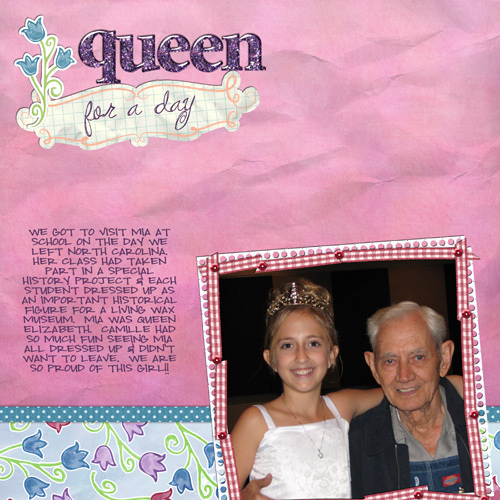 queen
for a day
WE GOT TO VISIT MIA AT
SCHOOL ON THE DAY WE
LEFT NORTH CAROLINA.
HER CLASS HAD TAKEN
PART IN A SPECIAL
HISTORY PROJECT & EACH
STUDENT DRESSED UP AS
AN IMPORTANT HISTORICAL
FIGURE FOR A LIVING WAX
MUSEUM. MIA WAS QUEEN
ELIZABETH. CAMILLE HAD
SO MUCH FUN SEEING MIA
ALL DRESSED UP & DIDN'T
WANT TO LEAVE. WE ARE
SO PROUD OF THIS GIRL!!